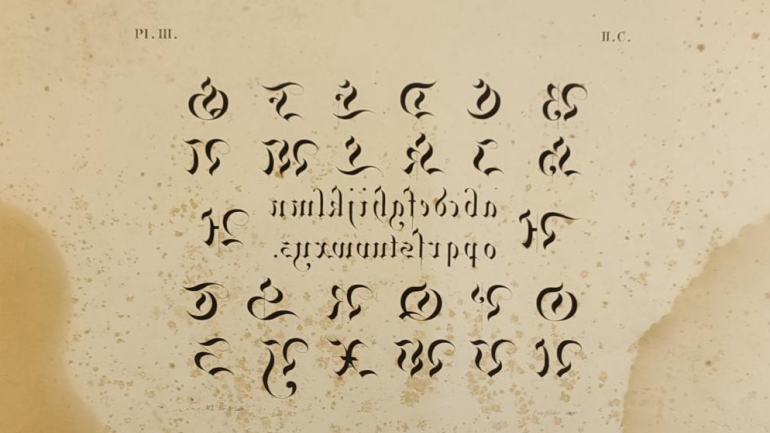 Pl. III. II.C.
B C D E F G
H I K L M N
abcdefghijklmn
opqrſstuvwxyz.
O P Q R S T
U V W X Y Z